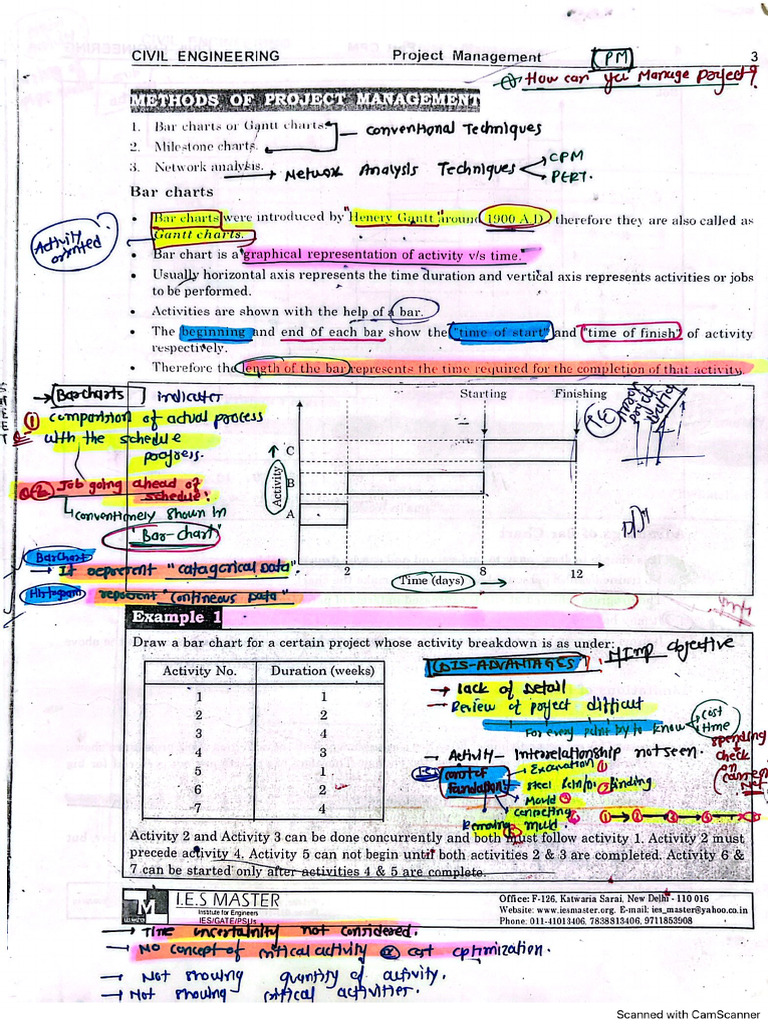 CIVIL ENGINEERING Project Management (PM) 3
How can you Manage Project?
METHODS OF PROJECT MANAGEMENT
1. Bar charts or Gantt charts.
2. Milestone charts.
Conventional Techniques
3. Network analysis. → Network Analysis Techniques
CPM
PERT.
Bar charts
• Bar charts were introduced by "Henery Gantt" around 1900 A.D. therefore they are also called as
Gantt charts.
Activity
• Bar chart is a "graphical representation of activity v/s time."
• Usually horizontal axis represents the time duration and vertical axis represents activities or jobs
to be performed.
• Activities are shown with the help of a bar.
• The beginning and end of each bar show the "time of start" and "time of finish" of activity
respectively.
• Therefore the length of the bar represents the time required for the completion of that activity.
→ Barcharts indicates
① comparision of actual process
with the schedule
progress.
② Job going ahead of
schedule!
shown in
"Bar-chart"
BarChart
→ It represent "catagorical Data"
Histogram represent "Contineous Data"
Starting Finishing
C
B
A
Activity
2 8 12
Time (days) →
Example 1
Draw a bar chart for a certain project whose activity breakdown is as under:
Activity No. Duration (weeks)
1 1
2 2
3 4
4 3
5 1
6 2
7 4
DIS-ADVANTAGES : objective
→ Lack of Detail
→ Review of project difficult
For every point to know
cost
time
→ Activity- Interrelationship not seen.
Excavation ①
Mould
mould
spending
check
on
Activity 2 and Activity 3 can be done concurrently and both must follow activity 1. Activity 2 must
precede activity 4. Activity 5 can not begin until both activities 2 & 3 are completed. Activity 6 &
7 can be started only after activities 4 & 5 are complete.
I.E.S MASTER
Institute for Engineers
IES/GATE/PSUs
Office: F-126, Katwaria Sarai, New Delhi - 110 016
Website: www.iesmaster.org. E-mail: ies_master@yahoo.co.in
Phone: 011-41013406, 7838813406, 9711853908
→ Time uncertainity not considered.
→ No concept of critical activity or cost optimization.
→ Not showing quantity of activity.
→ Not showing critical activities.
Scanned with CamScanner